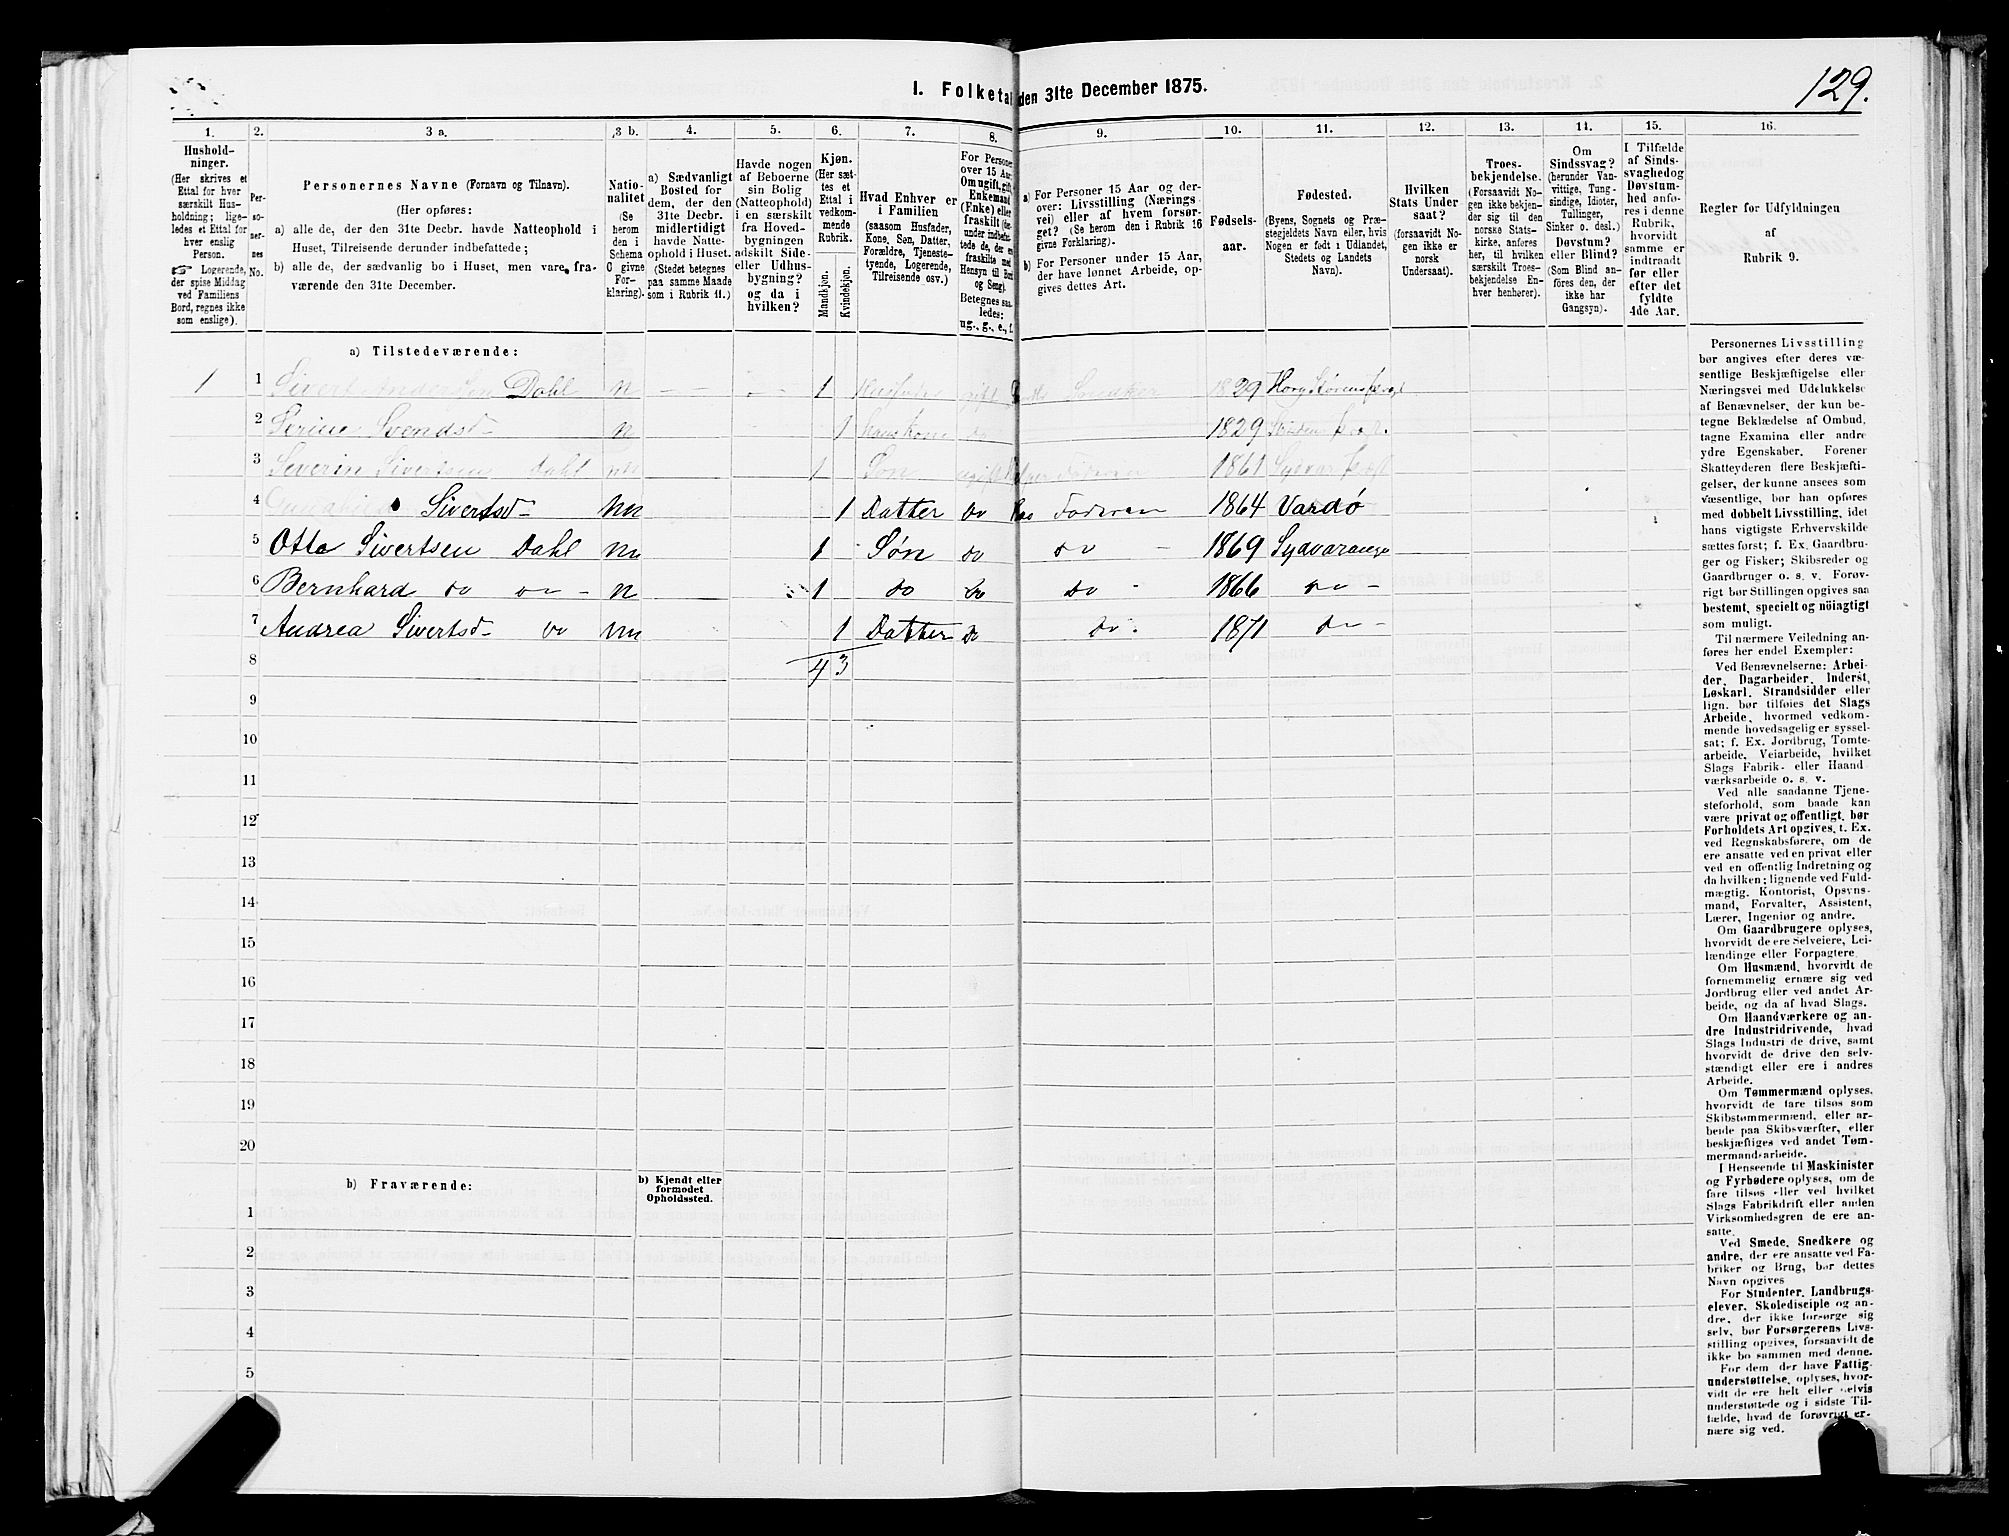 129.
I. Folketal den 31te December 1875.
1. 2. 3 a. 3 b. 4. 5. 6. 7. 8. 9. 10. 11. 12. 13. 14. 15. 16.
Hushold-
ninger.
(Her skrives et
Ettal for hver
særskilt Hus-
holdning; lige-
ledes et Ettal for
hver enslig
Person.
☞ Logerende,
der spise Middag
ved Familiens
Bord, regnes ikke
som enslige).
Per-
so-
ner-
nes
No.
Personernes Navne (Fornavn og Tilnavn).
(Her opføres:
a) alle de, der den 31te Decbr. havde Natteophold i
Huset, Tilreisende derunder indbefattede;
b) alle de, der sædvanlig bo i Huset, men vare fra-
værende den 31te December.
Natio-
nalitet
(Se
herom
den i
Schema
C givne
For-
klaring).
a) Sædvanligt
Bosted for
dem, der den
31te Decbr.
midlertidigt
havde Natte-
ophold i Huset.
(Stedet betegnes
paa samme Maade
som i Rubrik 11.)
Havde nogen
af Beboerne
sin Bolig
(Natteophold)
i en særskilt
fra Hoved-
bygningen
adskilt Side-
eller Udhus-
bygning?
og da i
hvilken?
Kjøn.
(Her sæt-
tes et
Ettal i
vedkom-
mende
Rubrik.
Mandkjøn.
Kvindekjøn.
Hvad Enhver er
i Familien
(saasom Husfader,
Kone, Søn, Datter,
Forældre, Tjeneste-
tyende, Logerende,
Tilreisende osv.)
For Personer
over 15 Aar:
Om ugift, gift,
Enkemand
(Enke) eller
fraskilt
Betegnes saa-
ledes:
ug., g., e., f.
a) For Personer 15 Aar og der-
over: Livsstilling (Nærings-
vei) eller af hvem forsør-
get? (Se herom den i Rubrik 16
givne Forklaring).
b) For Personer under 15 Aar,
der have lønnet Arbeide, op-
gives dettes Art.
Fødsels-
aar.
Fødested.
(Byens, Sognets og Præ-
stegjeldets Navn eller, hvis
Nogen er født i Udlandet,
Stedets og Landets
Navn).
Hvilken
Stats Under-
saat?
(forsaavidt No-
gen ikke er
norsk
Undersaat).
Troes-
bekjendelse.
(Forsaavidt No-
gen ikke bekjen-
der sig til den
norske Stats-
kirke, anføres
her, til hvilken
særskilt Troes-
bekjendelse En-
hver henhører).
Om
Sindssvag?
(herunder Van-
vittige, Tung-
sindige, Idioter,
Tullinger,
Sinker o. desl.)
Døvstum?
eller Blind?
(Som Blind an-
føres den, der
ikke har
Gangsyn).
I Tilfælde
af Sinds-
svaghed og
Døvstum-
hed anfø-
res i denne
Rubrik,
hvorvidt
samme er
indtraadt
før eller
efter det
fyldte
4de Aar.
Regler for Udfyldningen
af
Rubrik 9.
a) Tilstedeværende:
1 1 Sivert Andersen Dahl n 1 gift 1829
2 Serine Svendsd n 1 Hans Kone do 1829
3 Severin Sivertsen Dahl 1 Søn 1861
4 Sivertsd 1 Datter do Faderen 1864 Vardø
5 Otto Sivertsen Dahl 1 Søn do do 1869 Sydvaranger
6 Bernhard do do n 1 do do do 1866 do
7 Andrea Sivertsd do 1 Datter do do. 1871 do
8 4 3
9
10
11
12
13
14
15
16
17
18
19
20
b) Fraværende:
b) Kjendt eller
formodet
Opholdssted.
1
2
3
4
5
Personernes Livsstilling
bør angives efter deres væ-
sentlige Beskjæftigelse eller
Næringsvei med Udelukkelse
af Benævnelser, der kun be-
tegne Beklædelse af Ombud,
tagne Examina eller andre
ydre Egenskaber. Forener
Skatteyderen flere Beskjæfti-
gelser, der kunne ansees som
væsentlige, bør han opføres
med dobbelt Livsstilling, idet
hans vigtigste Erhvervskilde
sættes først; f. Ex. Gaardbru-
ger og Fisker; Skibsreder og
Gaardbruger o. s. v. Forøv-
rigt bør Stillingen opgives saa
bestemt, specielt og nöiagtigt
som muligt.
Til nærmere Veiledning an-
føres her endel Exempler:
Ved Benævnelserne: Arbei-
der, Dagarbeider, Inderst,
Løskarl, Strandsidder eller
lign. bør tilføies det Slags
Arbeide, hvormed vedkom-
mende hovedsagelig er syssel-
sat; f. Ex. Jordbrug, Tomte-
arbeide, Veiarbeide, hvilket
Slags Fabrik- eller Haand-
værksarbeide o. s. v.
Ved alle saadanne Tjene-
steforhold, som baade kan
være privat og offentligt, bør
Forholdets Art opgives, t. Ex.
ved Regnskabsførere, om de
ere ansatte ved en privat eller
ved en offentlig Indretning og
da hvilken; lignende ved Fuld-
mægtig, Kontorist, Opsyns-
mand, Forvalter, Assistent,
Lærer, Ingeniør og andre.
Om Gaardbrugere oplyses,
hvorvidt de ere Selveiere, Lei-
lændinge eller Forpagtere.
Om Husmænd, hvorvidt de
fornemmelig ernære sig ved
Jordbrug eller ved andet Ar-
beide, og da af hvad Slags.
Om Haandværkere og an-
dre Industridrivende, hvad
Slags Industri de drive, samt
hvorvidt de drive den selv-
stændigt eller ere i andres
Arbeide.
Om Tømmermænd oplyses,
hvorvidt de fare tilsøs som
Skibstømmermænd, eller ar-
beide paa Skibsværfter, eller
beskjæftiges ved andet Tøm-
mermandsarbeide.
I Henseende til Maskinister
og Fyrbødere oplyses, om de
fare tilsøs eller ved hvilket
Slags Fabrikdrift eller anden
Virksomhedsgren de ere an-
satte.
Ved Smede, Snedkere og
andre, der ere ansatte ved Fa-
briker og Brug, bør dettes
Navn opgives
For Studenter, Landbrugs-
elever, Skoledisciple og an-
dre, der ikke forsørge sig
selv, bør Forsørgerens Livs-
stilling opgives, forsaavidt de
ikke bo sammen med denne.
For dem, der have Fattig-
understøttelse, oplyses, hvor-
vidt de ere helt eller delvis
understøttede og i sidste Til-
fælde, hvad de forøvrigt er-
nære sig ved.